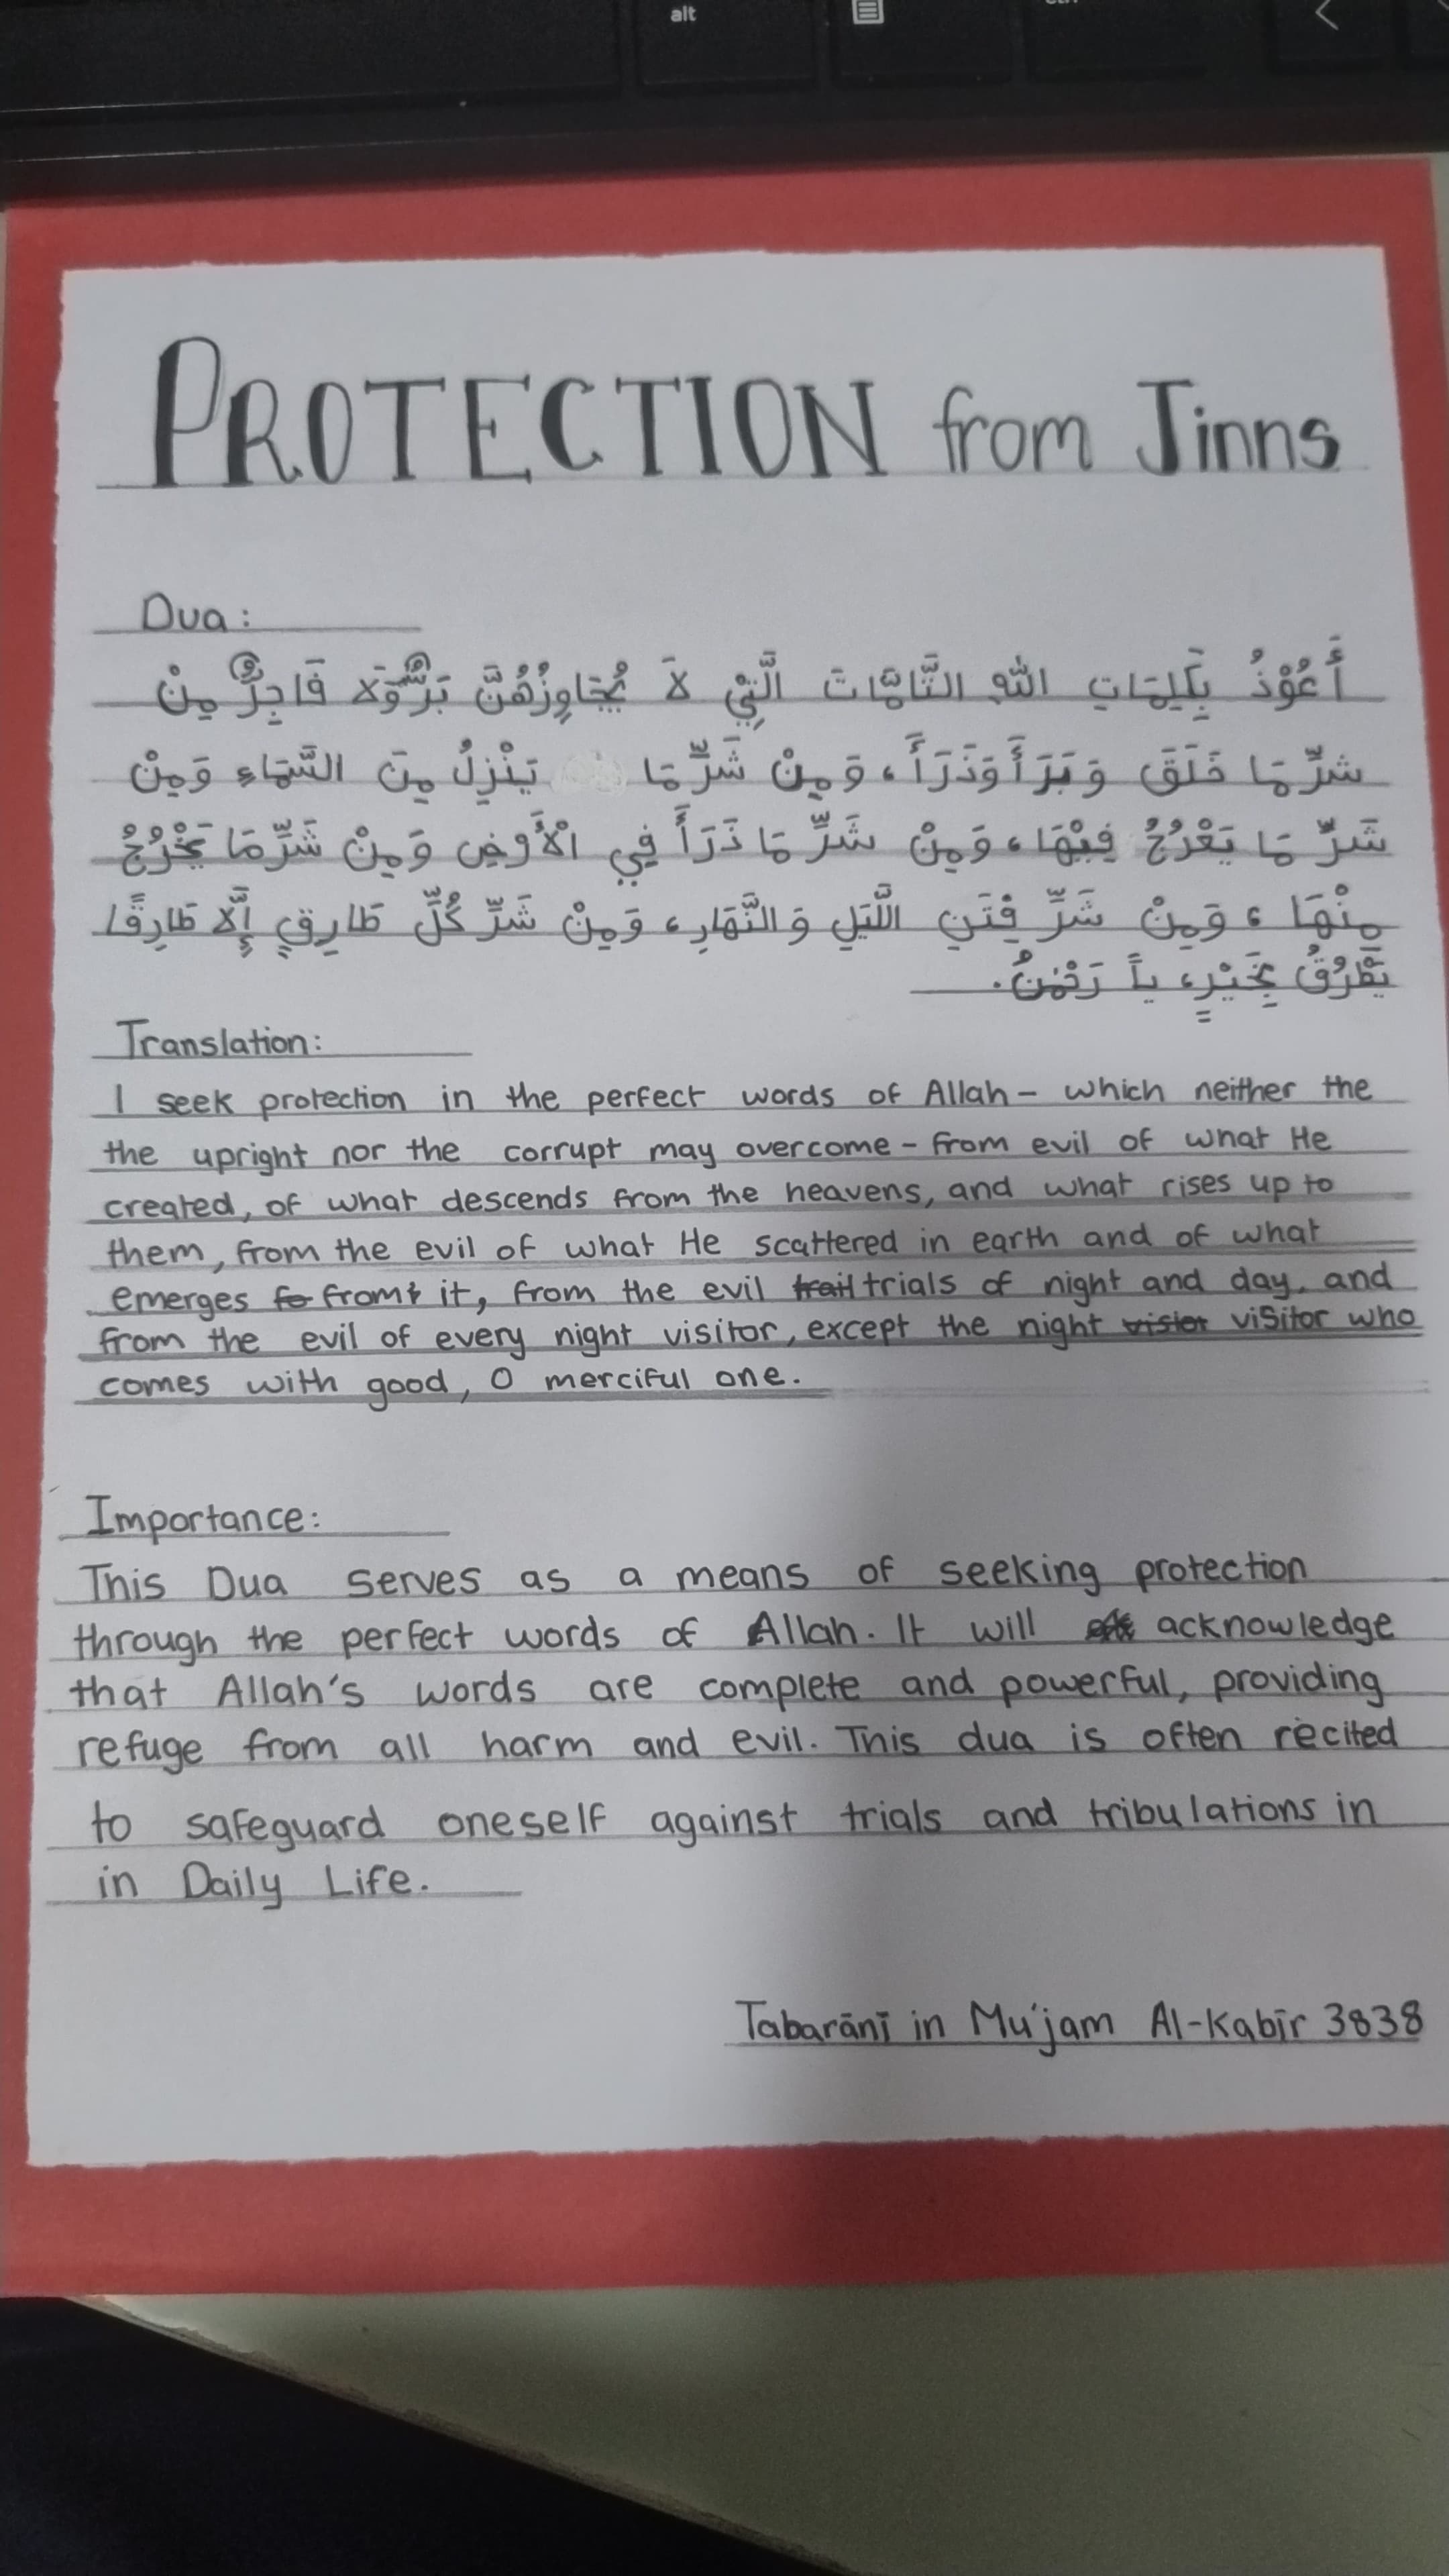 alt
PROTECTION from Jinns
Dua:
أَعُوْذُ بِكَلِمَاتِ اللّٰهِ التَّامَّاتِ الَّتِيْ لَا يُجَاوِزُهُنَّ بَرٌّ وَّلَا فَاجِرٌ مِنْ
شَرِّ مَا خَلَقَ وَبَرَأَ وَذَرَأَ، وَمِنْ شَرِّ مَا يَنْزِلُ مِنَ السَّمَاءِ وَمِنْ
شَرِّ مَا يَعْرُجُ فِيْهَا، وَمِنْ شَرِّ مَا ذَرَأَ فِي الْأَرْضِ وَمِنْ شَرِّ مَا يَخْرُجُ
مِنْهَا، وَمِنْ شَرِّ فِتَنِ اللَّيْلِ وَالنَّهَارِ، وَمِنْ شَرِّ كُلِّ طَارِقٍ إِلَّا طَارِقًا
يَطْرُقُ بِخَيْرٍ، يَا رَحْمٰنُ.
Translation:
I seek protection in the perfect words of Allah - which neither the
the upright nor the corrupt may overcome - from evil of what He
created, of what descends from the heavens, and what rises up to
them, from the evil of what He scattered in earth and of what
emerges from it, from the evil trials of night and day, and
from the evil of every night visitor, except the night visitor who
comes with good, O merciful one.
Importance:
This Dua serves as a means of seeking protection
through the perfect words of Allah. It will acknowledge
that Allah's words are complete and powerful, providing
refuge from all harm and evil. This dua is often recited
to safeguard oneself against trials and tribulations in
in Daily Life.
Tabarānī in Mu'jam Al-Kabīr 3838